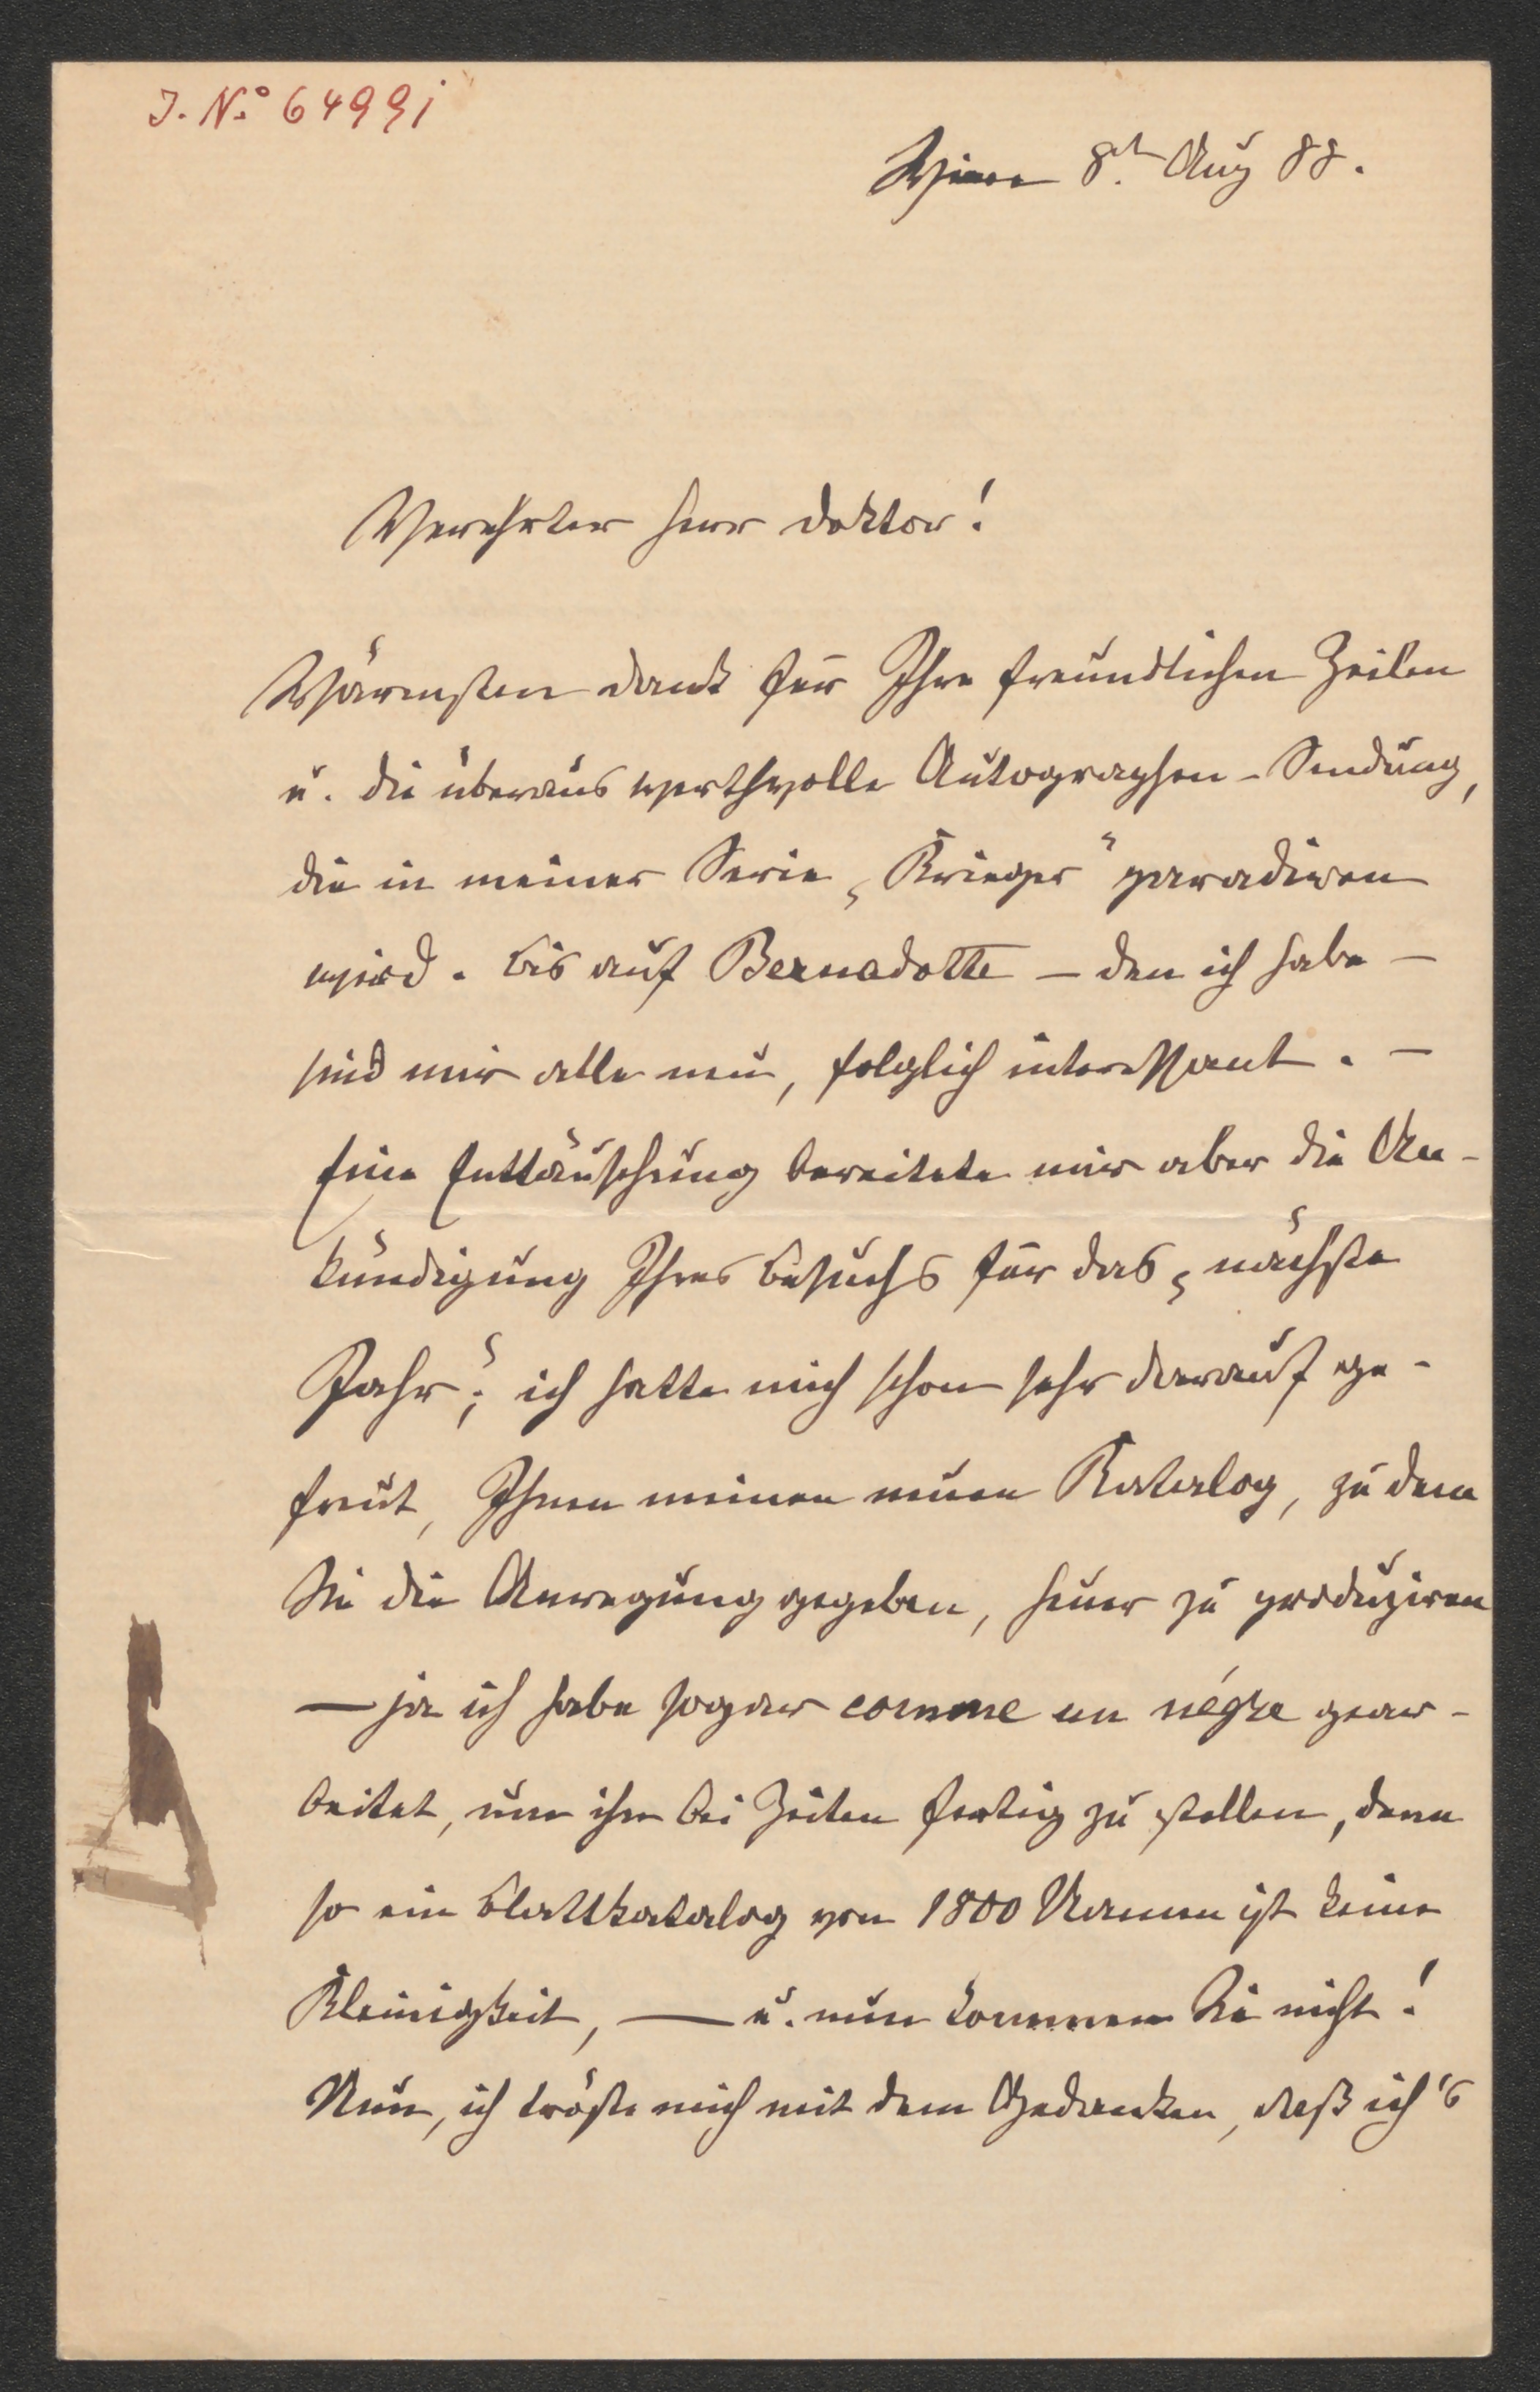 J. No 64991
Wien 8t. Aug 88.
Verehrter Herr Doktor!
Wärmsten Dank für Ihre freundlichen Zeilen
u. die überaus werthvolle Autographen-Sendung,
die in meiner Serie „Krieger“ paradiren
wird. Bis auf Bernadotte – den ich habe –
sind mir alle neu, folglich interessant. –
Eine Enttäuschung bereitete mir aber die An-
kündigung Ihres Besuchs für das „nächste
Jahr“; ich hatte mich schon sehr darauf ge-
freut, Ihnen meinen neuen Katalog, zu dem
Sie die Anregung gegeben, heuer zu produziren
— ja ich habe sogar comme un négre gear-
beitet, um ihn bei Zeiten fertig zu stellen, denn
so ein Blattkatalog von 1800 Namen ist keine
Kleinigkeit, — u. nun kommen Sie nicht!
Nun, ich tröste mich mit dem Gedanken, daß ich's